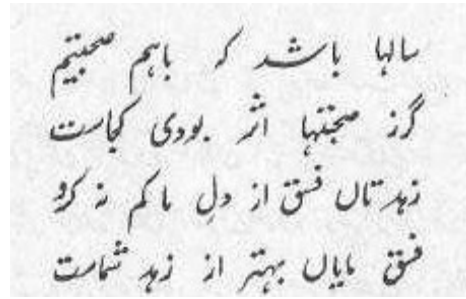 سالها باشد که باہم صحبتیم
گرز صحبتہا اثر بودی کجاست
زہدتاں فسق از دلِ ما کم نہ کرد
فسق مایاں بہتر از زہد شماست